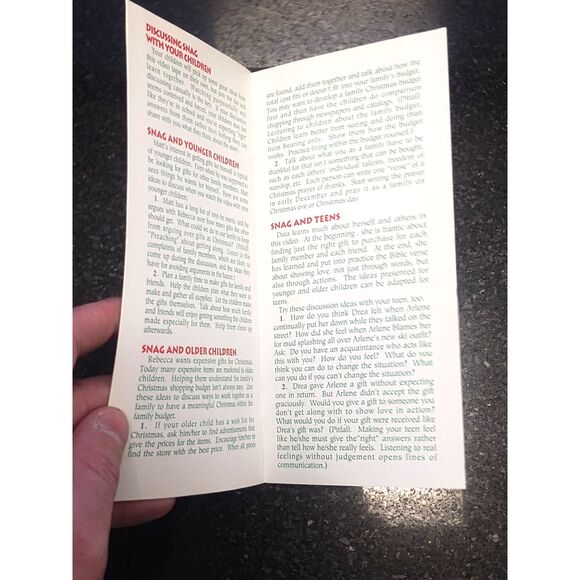 DISCUSSING SNAG
WITH YOUR CHILDREN
Your children will pick up some great ideas from
this video tape on their own, but as a
learn together.
discussing casually
seems contrived and forced, your children may feel
like they're in school and you're expecting "right"
answers from them rather than letting them
share with you what they think about the story.
SNAG AND YOUNGER CHILDREN
Matt's interest in getting for himself is typical
of younger children. Even when he was supposed to
be looking for gifts for other family members, Matt
sees things he wants for himself. Here are some
ideas to discuss when you watch the video with your
younger children:
1. Matt has a long list of toys he wants, and he
argues with Rebecca over how many gifts the other
is getting. What could we do in our family to keep
from arguing over gifts at Christmas? (Pitfall:
"Preaching" about getting along. Listen to the
complaints of family members, which are likely to
come up during the discussion, and the ideas they
have for avoiding arguments in the future.)
2. Plan a family time to make gifts for family and
friends. Help the children plan what they want to
make and gather all supplies. Let the children make
the gifts themselves. Talk about how much family
and friends will enjoy getting something the children
made especially for them. Help them clean up
afterwards.
SNAG AND OLDER CHILDREN
Rebecca wants expensive gifts for Christmas.
Today many expensive items are marketed to older
children. Helping them understand the family's
Christmas shopping budget isn't always easy. Use
these ideas to discuss ways to work together as a
family to have a meaningful Christmas within the
family budget.
1. If your older child has a wish list for
Christmas, ask him/her to find advertisements that
give the prices for the items. Encourage him/her to
find the store with the best price. When all prices
are found, add them together and talk about how the
total cost fits or doesn't fit into your family's budget.
You may want to develop a family Christmas budget
first and then have the children do comparison
shopping through newspapers and catalogs. (Pitfall:
Lecturing to children about the family budget.
Children learn better from seeing and doing than
from hearing only. Show them how the budget
works. Practice living within the budget yourself.)
2. Talk about what you as a family have to be
thankful for that isn't something that can be bought,
such as each others' individual talents, freedom of
worship, etc. Each person can write one "verse" of a
Christmas prayer of thanks. Start writing the prayer
in early December and pray it as a family on
Christmas Eve or Christmas day.
SNAG AND TEENS
Drea learns much about herself and others in
this video. At the beginning, she is frantic about
finding just the right gift to purchase for each
family member and each friend. At the end, she
has learned and put into practice the Bible verse
about showing love, not just through words, but
also through actions. The ideas presented for
younger and older children can be adapted for
teens.
Try these discussion ideas with your teens, too.
1. How do you think Drea felt when Arlene
continually put her down while they talked on the
street? How did she feel when Arlene blames her
for mud splashing all over Arlene's new ski outfit?
Ask: Do you have an acquaintance who acts like
this with you? How do you feel? What do you
think you can do to change the situation? What
can you do if you can't change the situation?
2. Drea gave Arlene a gift without expecting
one in return. But Arlene didn't accept the gift
graciously. Would you give a gift to someone you
don't get along with to show love in action?
What would you do if your gift were received like
Drea's gift was? (Pitfall: Making your teen feel
like he/she must give the "right" answers rather
than tell how he/she really feels. Listening to real
feelings without judgement opens lines of
communication.)